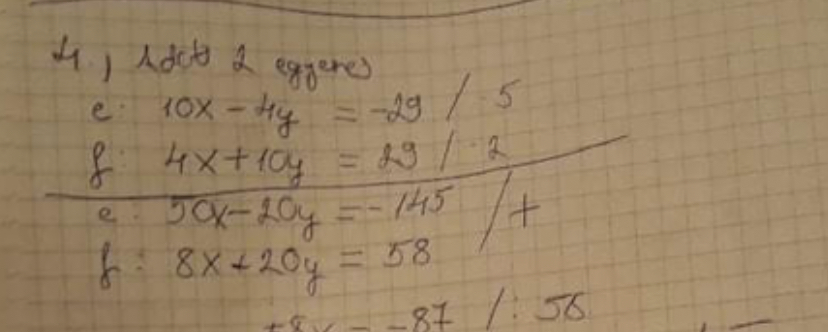 4., Adott 2 egyenes
e: 10x - 4y = -29 / · 5
f: 4x + 10y = 29 / · 2
e: 50x - 20y = -145 / +
f: 8x + 20y = 58
58x = -87 / : 58